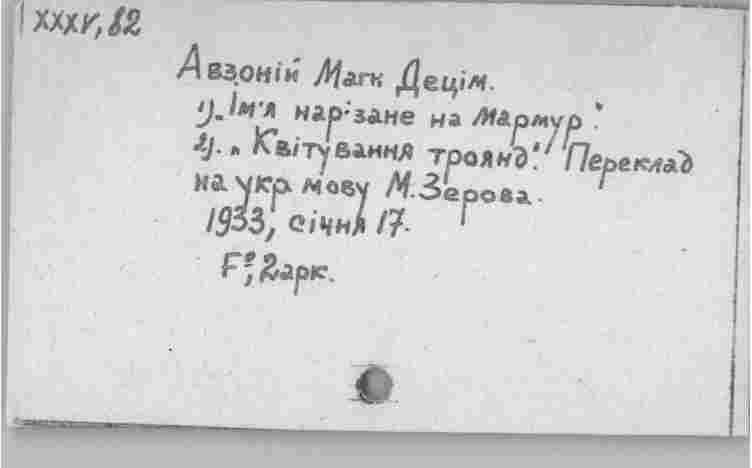 XXXV, 82
Авзоній Марк Децім.
1) „Ім'я нарізане на мармур".
2). „Квітування троянд". Переклад
на укр. мову М. Зерова.
1933, січня 17.
F°, 2 арк.